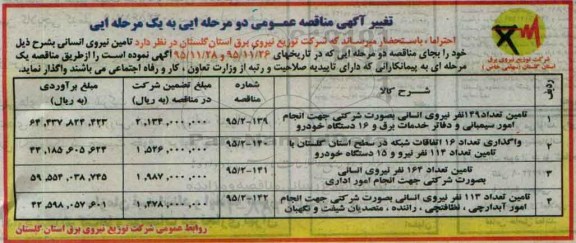 تغییر آگهی مناقصه عمومی دو مرحله ایی به یک مرحله ایی
احتراما ، باستحضار میرساند که شرکت توزیع نیروی برق استان گلستان در نظر دارد تامین نیروی انسانی بشرح ذیل
خود را بجای مناقصه دو مرحله ایی که در تاریخهای ۹۵/۱۱/۲۶ و ۹۵/۱۱/۲۸ آگهی نموده است را ازطریق مناقصه یک
مرحله ای به پیمانکارانی که دارای تاییدیه صلاحیت و رتبه از وزارت تعاون ، کار و رفاه اجتماعی می باشند واگذار نماید.
شرکت توزیع نیروی برق
استان گلستان (سهامی خاص)
ردیف شرح کالا شماره مناقصه مبلغ تضمین شرکت در مناقصه (به ریال) مبلغ برآوردی (به ریال)
۱ تامین تعداد۱۴۹نفر نیروی انسانی بصورت شرکتی جهت انجام امور سیمبانی و دفاتر خدمات برق و ۱۶ دستگاه خودرو ۹۵/۲-۱۳۹ ۲,۱۳۴,۰۰۰,۰۰۰ ۶۴,۴۳۷,۸۲۴,۳۲۳
۲ واگذاری تعداد ۱۶ اتفاقات شبکه در سطح استان گلستان با تامین تعداد ۱۱۴ نفر نیرو و ۱۵ دستگاه خودرو ۹۵/۲-۱۴۰ ۱,۵۲۶,۰۰۰,۰۰۰ ۴۴,۱۸۵,۶۰۵,۶۲۴
۳ تامین تعداد ۱۶۴ نفر نیروی انسانی بصورت شرکتی جهت انجام امور اداری ۹۵/۲-۱۴۱ ۱,۹۸۷,۰۰۰,۰۰۰ ۵۹,۵۵۴,۰۳۸,۷۴۵
۴ تامین تعداد ۱۱۳ نفر نیروی انسانی بصورت شرکتی جهت انجام امور آبدارچی ، نظافتچی ، راننده ، متصدیان شیفت و نگهبان ۹۵/۲-۱۴۲ ۱,۴۷۸,۰۰۰,۰۰۰ ۴۲,۵۹۸,۰۵۷,۶۰۱
روابط عمومی شرکت توزیع نیروی برق استان گلستان